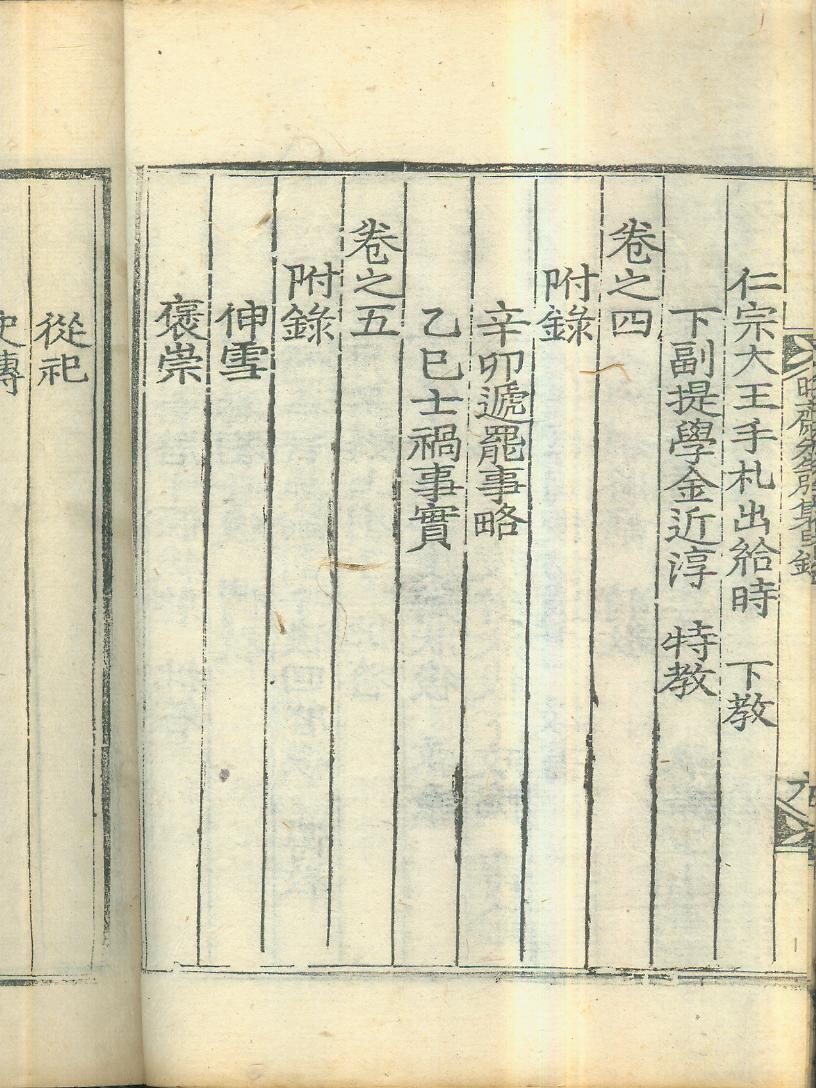 仁宗大王手札出給時　下教
下副提學金近淳　特教
卷之四
附錄
辛卯遞罷事略
乙巳士禍事實
卷之五
附錄
伸雪
褒崇
從祀
史傳